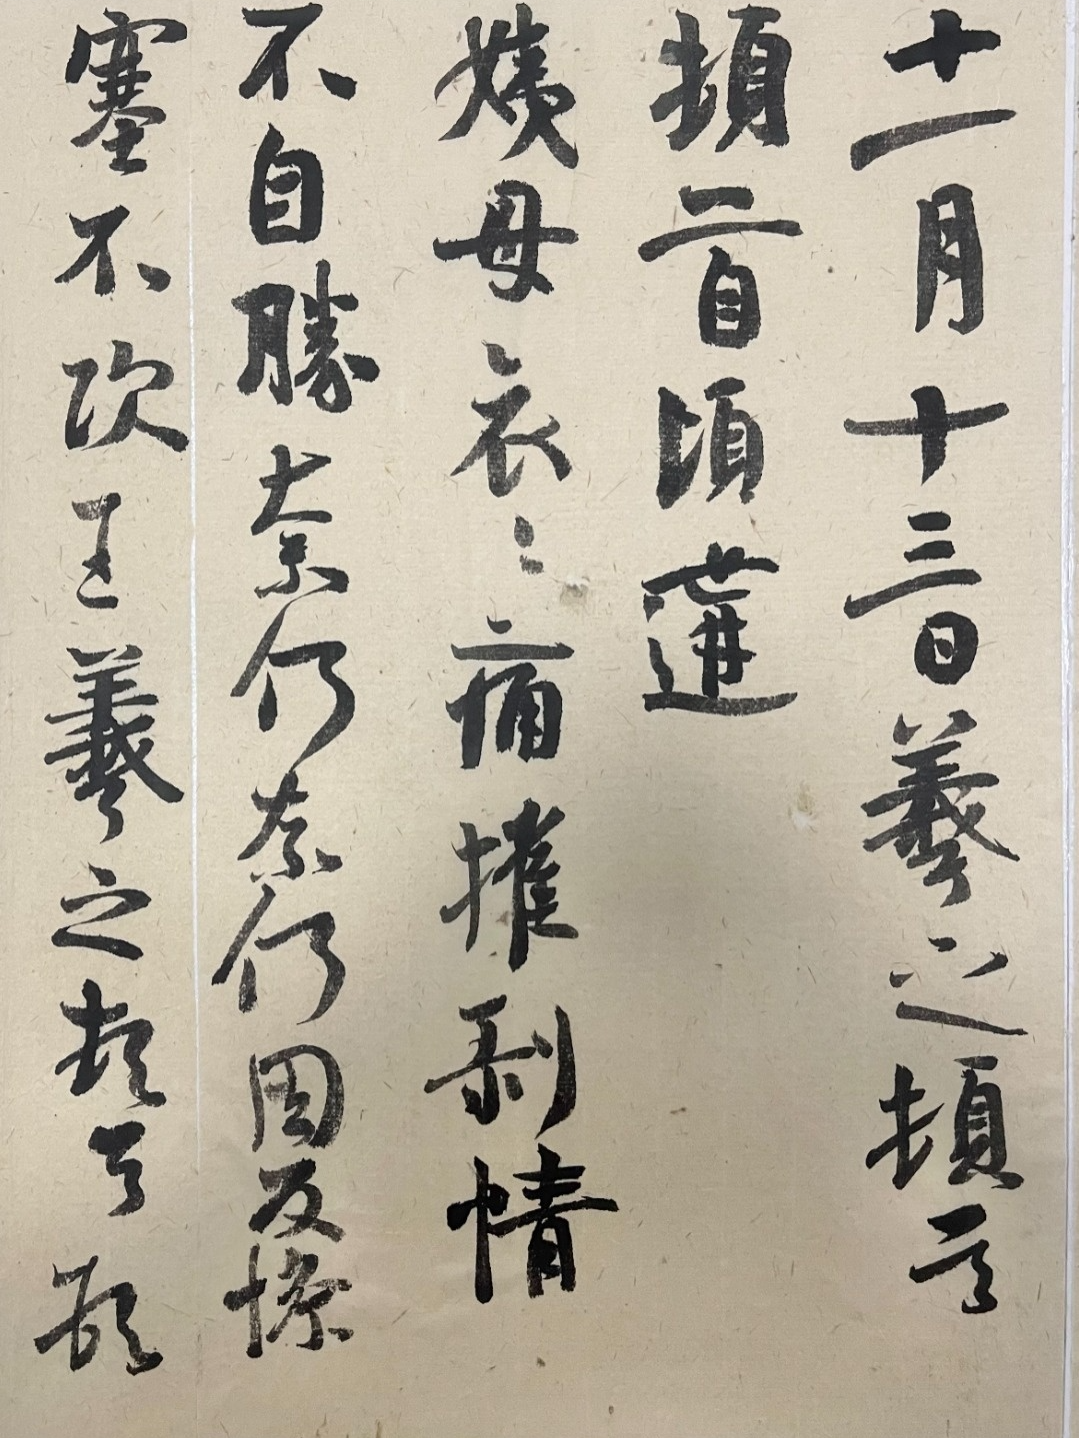 十一月十三日羲之頓首
頓首頃遘
姨母哀哀痛摧剥情
不自勝奈何奈何因反慘
塞不次王羲之頓首頓